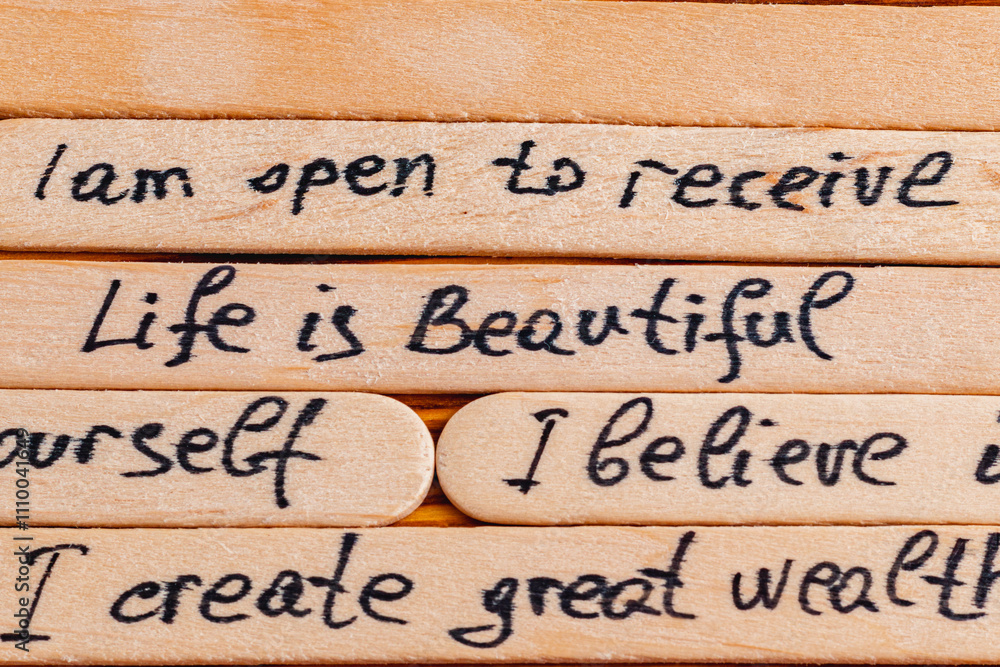 I am open to receive
Life is Beautiful
ourself I believe i
I create great wealth
Adobe Stock | #1110041649